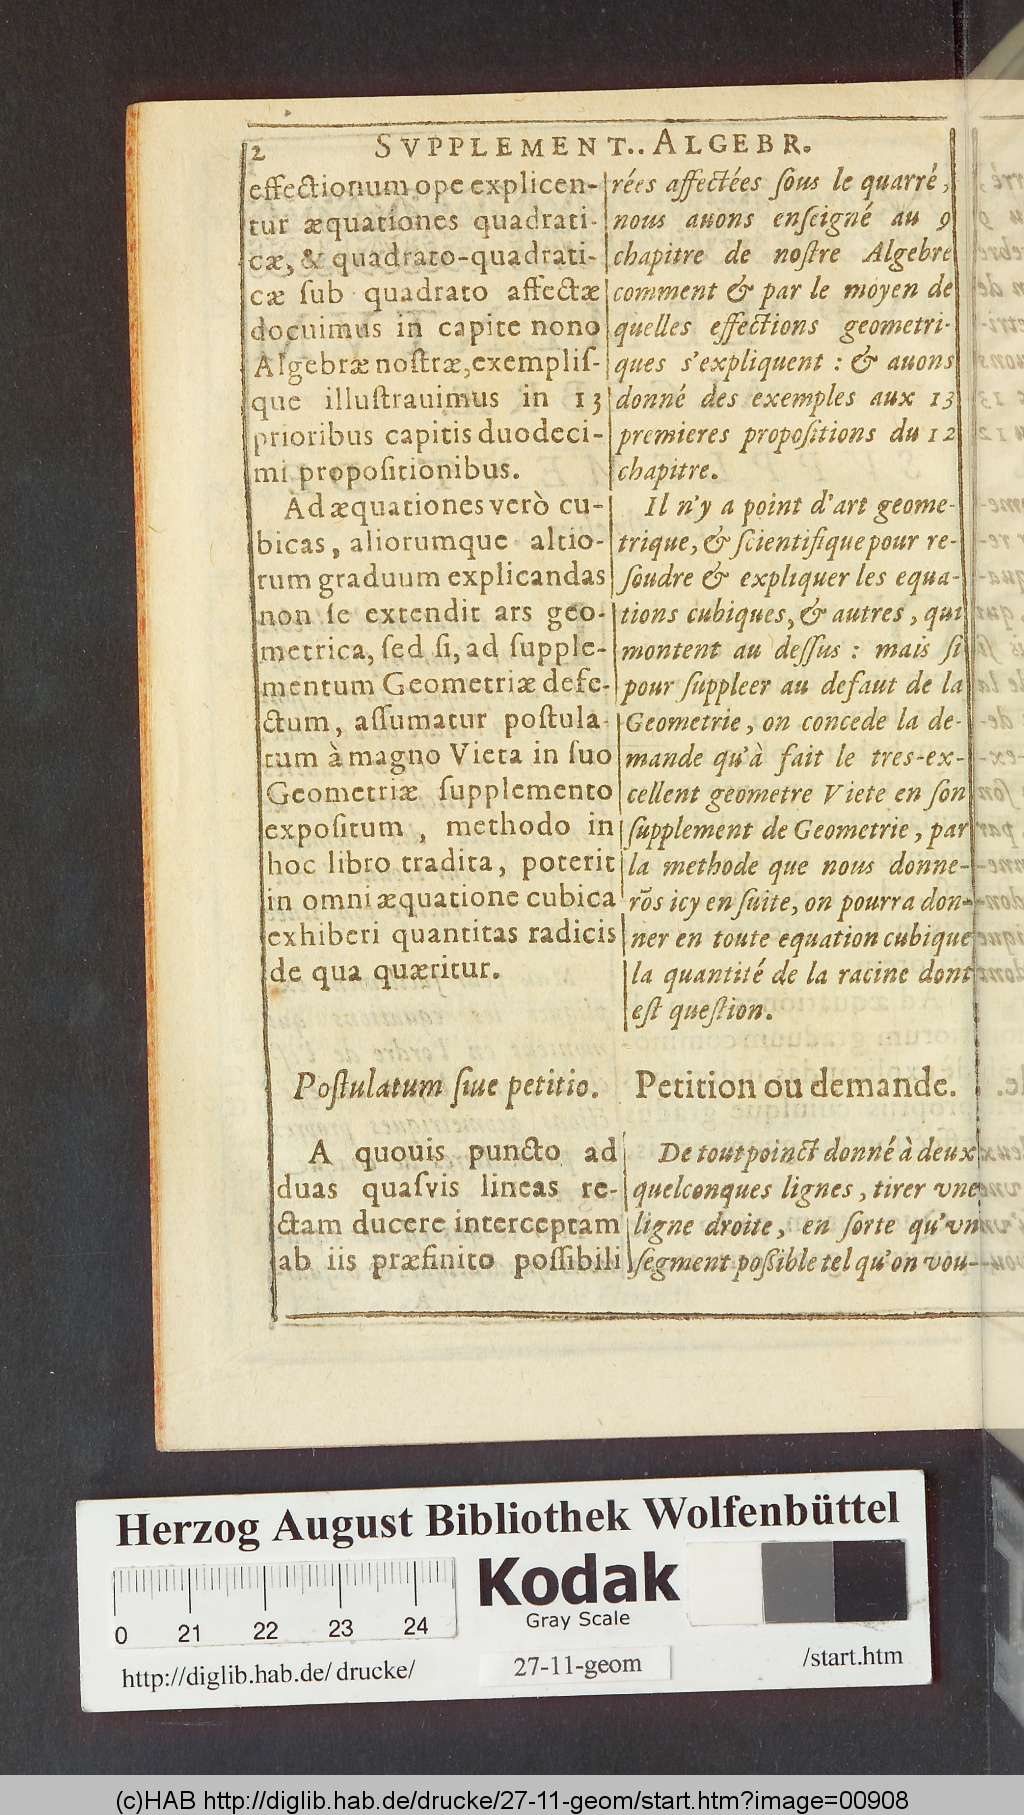 2
SVPPLEMENT.. ALGEBR.
effectionum ope explicen-
tur æquationes quadrati-
cæ, & quadrato-quadrati-
cæ ſub quadrato affectæ
docuimus in capite nono
Algebræ noſtræ, exempliſ-
que illuſtrauimus in 13
prioribus capitis duodeci-
mi propoſitionibus.
Ad æquationes verò cu-
bicas, aliorumque altio-
rum graduum explicandas
non ſe extendit ars geo-
metrica, ſed ſi, ad ſupple-
mentum Geometriæ defe-
ctum, aſſumatur poſtula-
tum à magno Vieta in ſuo
Geometriæ ſupplemento
expoſitum, methodo in
hoc libro tradita, poterit
in omni æquatione cubica
exhiberi quantitas radicis
de qua quæritur.
rées affectées ſous le quarré,
nous auons enſeigné au 9
chapitre de noſtre Algebre
comment & par le moyen de
quelles effections geometri-
ques s'expliquent : & auons
donné des exemples aux 13
premieres propoſitions du 12
chapitre.
Il n'y a point d'art geome-
trique, & ſcientifique pour re-
ſoudre & expliquer les equa-
tions cubiques, & autres, qui
montent au deſſus : mais ſi
pour ſuppleer au defaut de la
Geometrie, on concede la de-
mande qu'à fait le tres-ex-
cellent geometre Viete en ſon
ſupplement de Geometrie, par
la methode que nous donne-
rõs icy en ſuite, on pourra don-
ner en toute equation cubique
la quantité de la racine dont
eſt queſtion.
Poſtulatum ſiue petitio.
A quouis puncto ad
duas quaſvis lineas re-
ctam ducere interceptam
ab iis præfinito poſſibili
Petition ou demande.
De tout poinct donné à deux
quelconques lignes, tirer vne
ligne droite, en ſorte qu'vn
ſegment poſſible tel qu'on vou-
Herzog August Bibliothek Wolfenbüttel
Kodak
Gray Scale
0 21 22 23 24
http://diglib.hab.de/ drucke/ 27-11-geom /start.htm
(c)HAB http://diglib.hab.de/drucke/27-11-geom/start.htm?image=00908